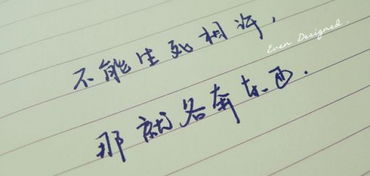 不能生死相许，
Even Designed.
那就各奔东西．